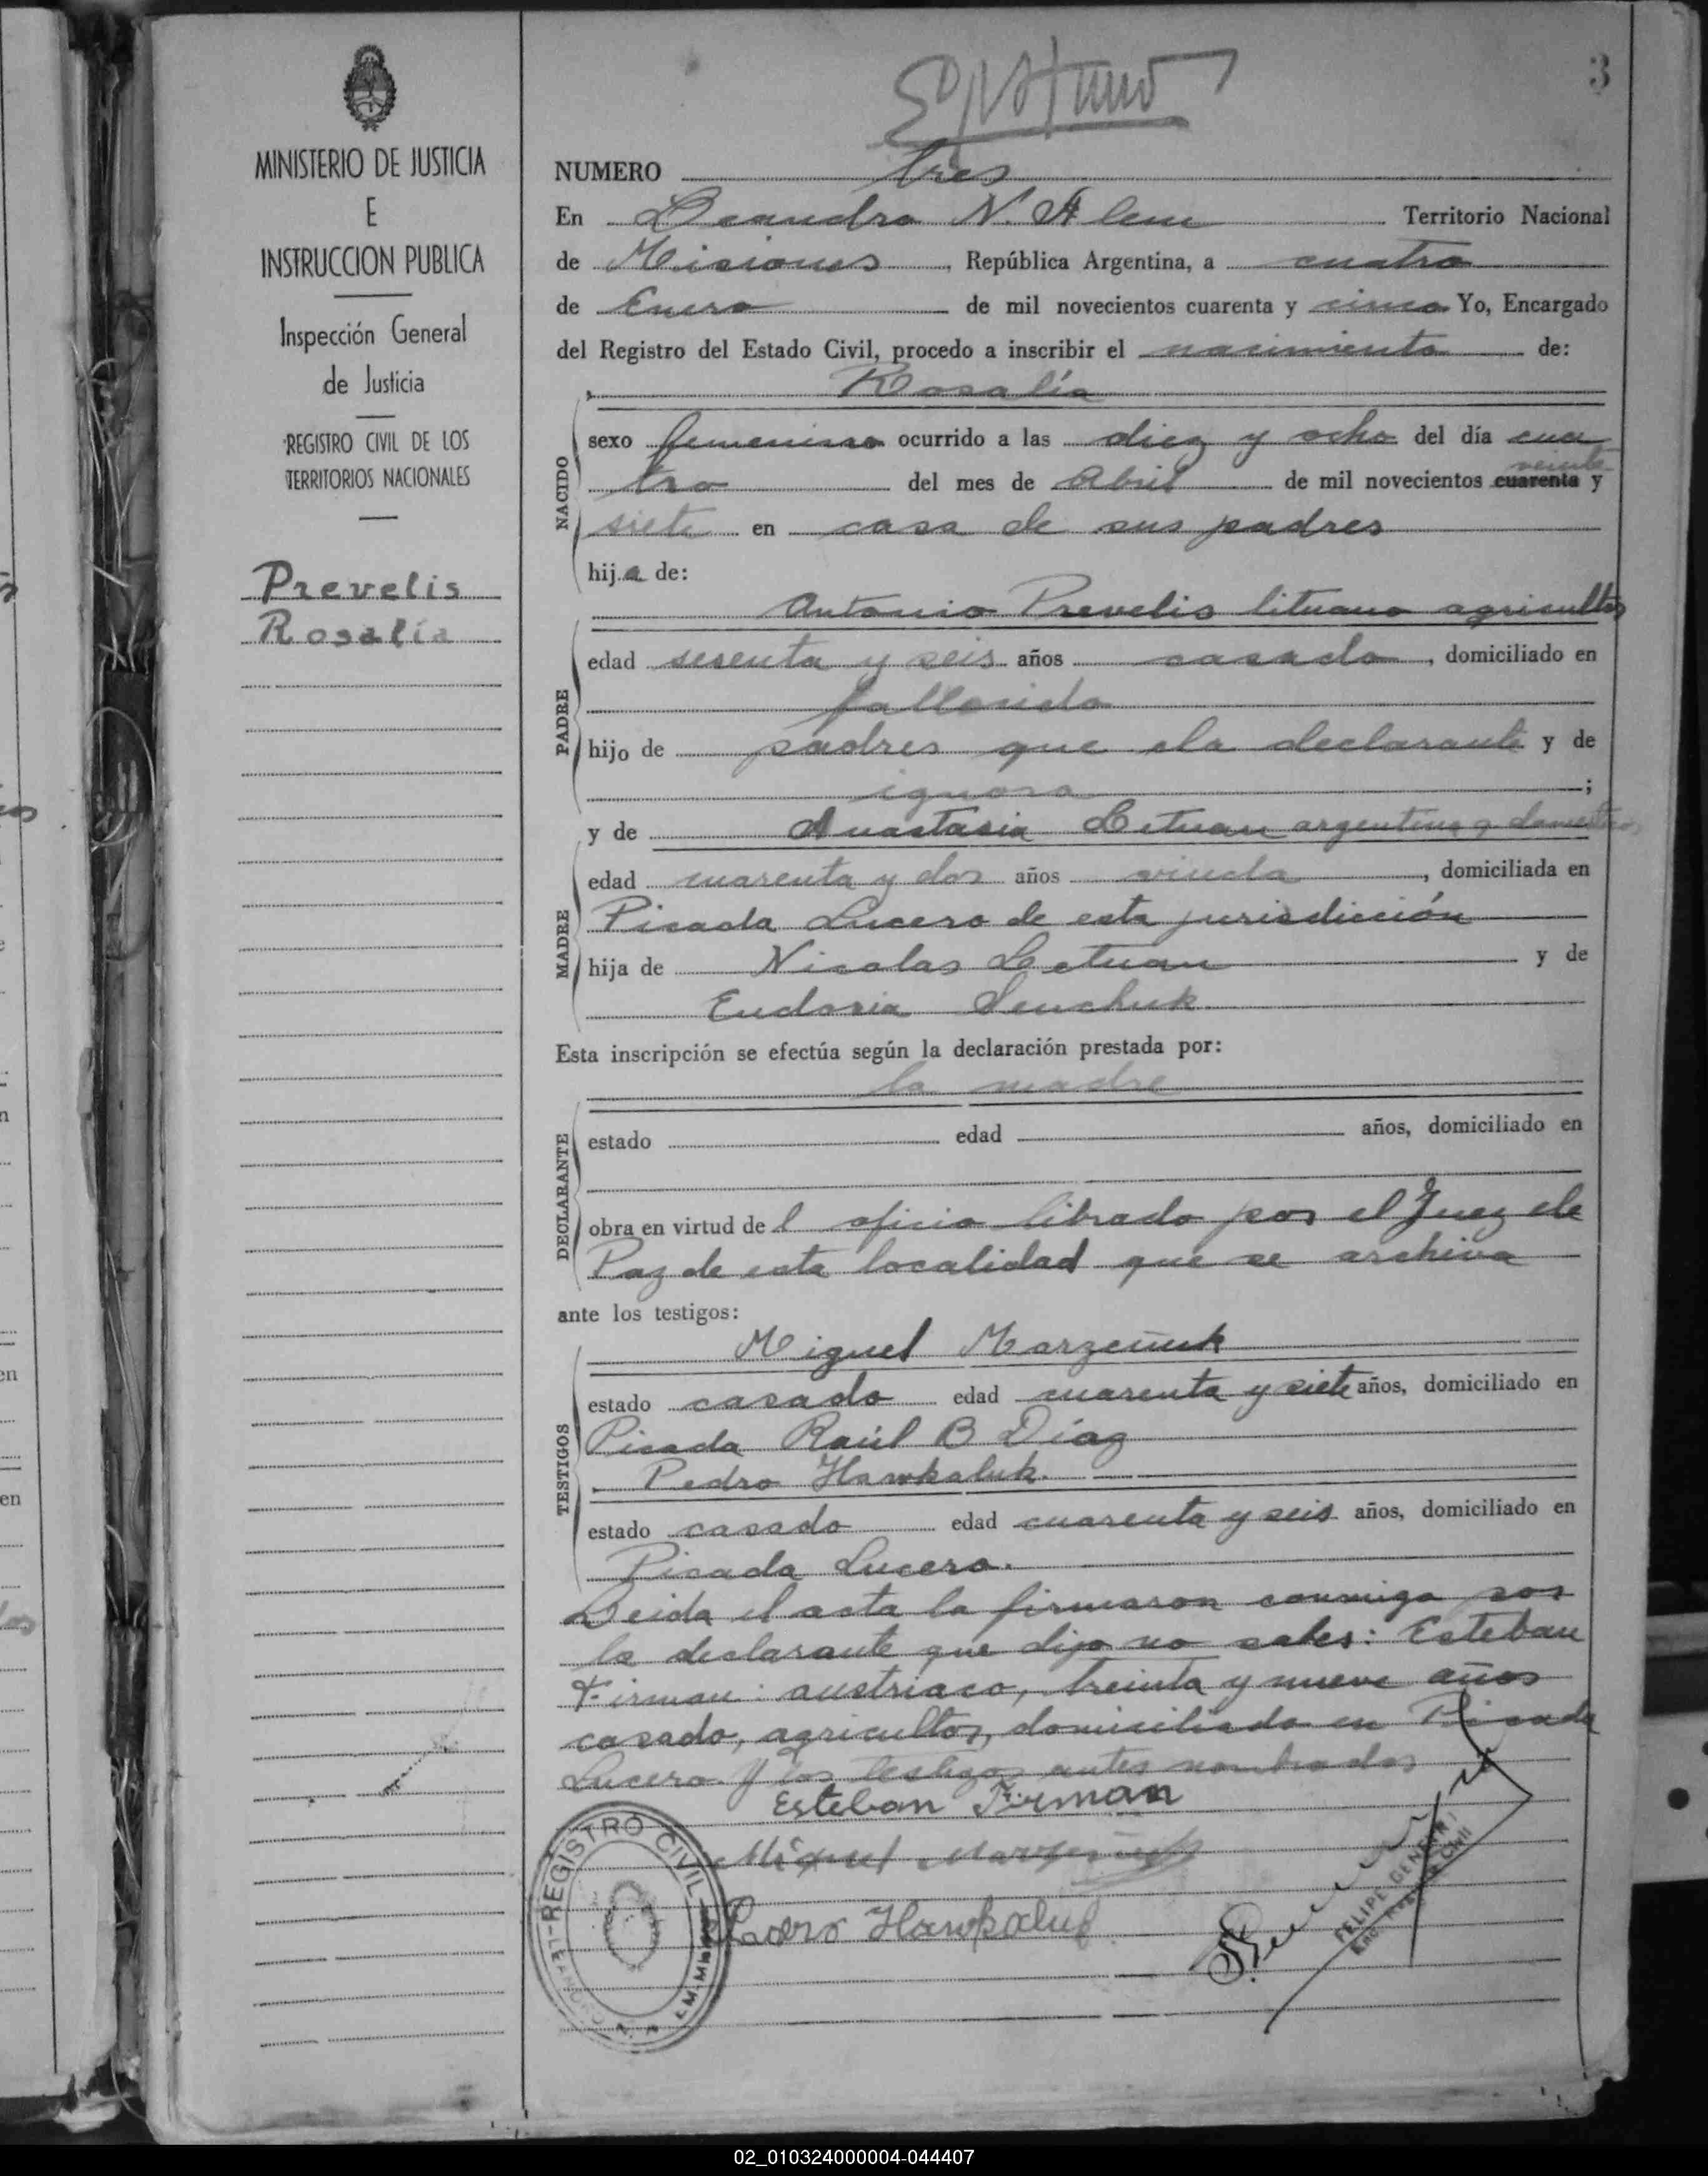 3
MINISTERIO DE JUSTICIA
E
INSTRUCCION PUBLICA
Inspección General
de Justicia
REGISTRO CIVIL DE LOS
TERRITORIOS NACIONALES
Prevelis
Rosalía
NUMERO tres
En Leandro N. Alem Territorio Nacional
de Misiones, República Argentina, a cuatro
de Enero de mil novecientos cuarenta y cinco Yo, Encargado
del Registro del Estado Civil, procedo a inscribir el nacimiento de:
Rosalía
NACIDO
sexo femenino ocurrido a las diez y ocho del día cua
veinte
tro del mes de Abril de mil novecientos cuarenta y
siete en casa de sus padres
hija de:
Antonio Prevelis lituano agricultor
PADRE
edad sesenta y seis años casado, domiciliado en
fallecido
hijo de padres que la declarante y de
ignora;
y de Anastasia Letuan argentina
MADRE
edad cuarenta y dos años viuda, domiciliada en
Picada Lucero de esta jurisdicción
hija de Nicolas Letuan y de
Eudosia Senchuk
Esta inscripción se efectúa según la declaración prestada por:
la madre
DECLARANTE
estado edad años, domiciliado en
obra en virtud del oficio librado por el Juez de
Paz de esta localidad que se archiva
ante los testigos:
TESTIGOS
Miguel Marzeñuk
estado casado edad cuarenta y siete años, domiciliado en
Picada Raúl B Díaz
Pedro Hawkaluk.
estado casado edad cuarenta y seis años, domiciliado en
Picada Lucero.
Leida el acta la firmaron conmigo por
la declarante que dijo no saber: Esteban
Firman: austriaco, treinta y nueve años
casado, agricultor, domiciliado en Picada
Lucero y los testigos antes nombrados
Esteban Firman
Miguel Marzeñuk
Pedro Hawkaluk
REGISTRO CIVIL
FELIPE GENERI
02_010324000004-044407